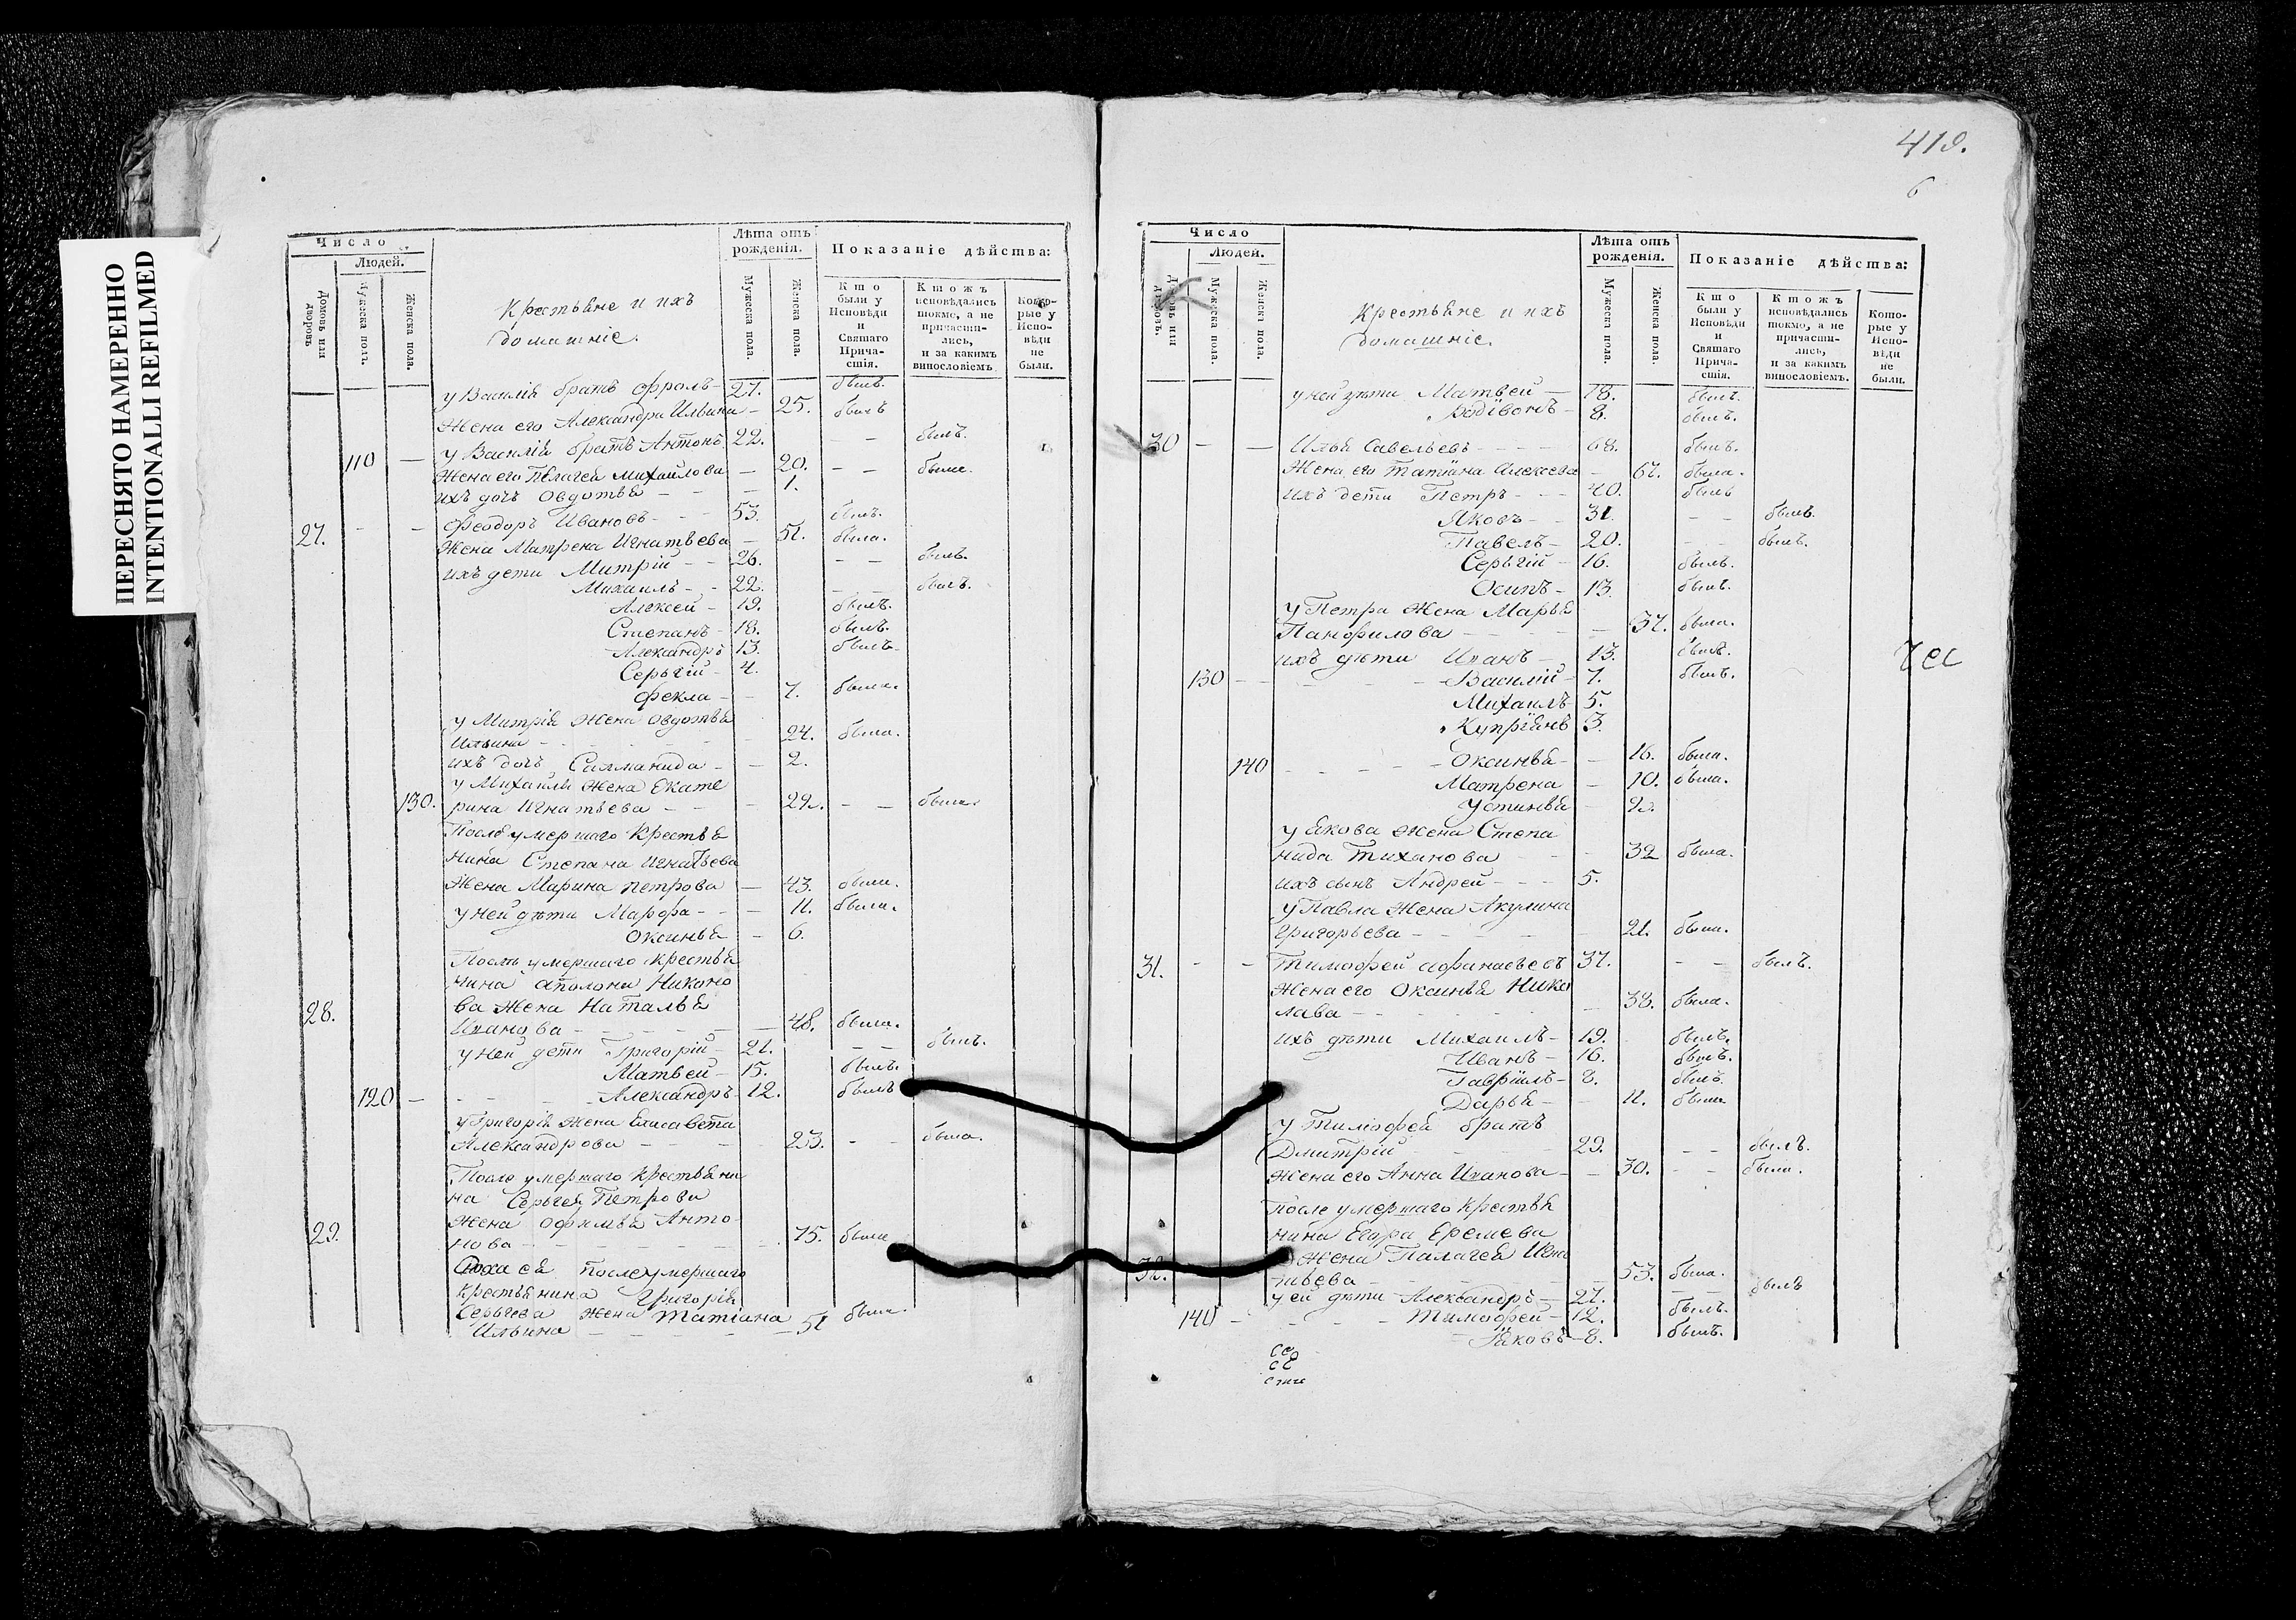 ПЕРЕСНЯТО НАМЕРЕННО
INTENTIONALLI REFILMED
Число
Людей.
Домовъ или дворовъ.
Мужеска полъ.
Женска пола.
Крестьяне и ихъ
домашніе.
Лѣта отъ рожденія.
Мужеска пола.
Женска пола.
Показаніе дѣйства:
Кто были у Исповѣди и Святаго Причастія.
Ктожъ исповѣдались токмо, а не причастились, и за какимъ винословіемъ
Которые у Исповѣди не были.
у Василія братъ Фролъ - 27. былъ.
Жена его Александра Ильина - 25. былъ
у Василія братъ Антонъ 22. - - былъ.
110 - Жена его Пелагея Михаилова - 20. - - была.
ихъ дочь Овдотья - - - 1.
27. - - Феодоръ Ивановъ - - - 53. былъ.
Жена Матрена Игнатьева - 51. была.
ихъ дети Митрій - - 26. - - былъ.
Михаилъ - - 22. - - былъ.
Алексей - 19. былъ.
Степанъ - 18. былъ.
Александръ 13. былъ.
Серьгій - 4.
Фекла - - 7. была.
у Митрія Жена Овдотья
Ильина - - - 24. была.
ихъ дочь Саломанида - - 2.
у Михаила Жена Екате
130. рина Игнатьева - - - 22. - - была.
После умершаго Крестья
нина Степана Игнатьева
Жена Марина Петрова - 43. была.
у ней дѣти Марфа - - - 11. была.
Оксинья - 6.
Послѣ умершаго крестья
нина Аполона Никоно
28. ва Жена Наталья
Иванова - - - 48. была.
у ней дети Григорій - 21. - - былъ.
Матвей - 15. былъ.
120 - - - Александръ - 12. былъ
у Григорія Жена Елисавета
Александрова - - - 23. - - была.
После умершаго Крестьяни
на Серьгея Петрова
Жена Офимья Анто
29. нова - - - 75. была
Сноха ея после умершаго
Крестьянина Григорія
Серьгева Жена Татіана
Ильина - - - 51 была.
419.
6
Число
Людей.
Домовъ или дворовъ.
Мужеска пола.
Женска пола.
Крестьяне и ихъ
домашніе.
Лѣта отъ рожденія.
Мужеска пола.
Женска пола.
Показаніе дѣйства:
Кто были у Исповѣди и Святаго Причастія.
Ктожъ исповѣдались токмо, а не причастились, и за какимъ винословіемъ.
Которые у Исповѣди не были.
у ней дѣти Матвей - 18. былъ.
Родівонъ - 8. былъ.
30 - - Илья Савельевъ - - - 68. былъ.
Жена его Татіана Алексева - 67. была.
ихъ дети Петръ - - - 40. былъ
Яковъ - - 31. - - былъ.
Павелъ - 20. - - былъ.
Серьгій - 16. былъ.
Осипъ - 13. былъ.
у Петра Жена Марья
Панфилова - - - 37. была.
ихъ дѣти Иванъ - 13. былъ.
130 - - - Василій - 7. былъ.
Михаилъ 5.
Купріянъ 3.
140 - - - Оксинья - - 16. была.
Матрена - 10. была.
Устинья - 2.
у Якова Жена Степа
нида Тиханова - - - 32 была.
ихъ сынъ Андрей - - - 5.
у Павла Жена Акулина
Григорьева - - - 21. была.
31. - - Тимофей Афанасьевъ 37. - - былъ.
Жена его Оксинья Нико
лава - - - 38. была.
ихъ дѣти Михаилъ - 19. былъ.
Иванъ - 16. былъ.
Гавріилъ - 8. былъ.
Дарья - - 11. была
у Тимофея братъ
Дмитрій - - - 29. - - былъ.
Жена его Анна Иванова - - 30. - - была.
После умершаго Крестья
нина Егора Еремева
32. Жена Палагея Игна
тьева - - - 53. была.
у ей дѣти Александръ - 27. - - былъ
140 - - - Тимофей - 12. былъ.
Яковъ - 8. былъ.